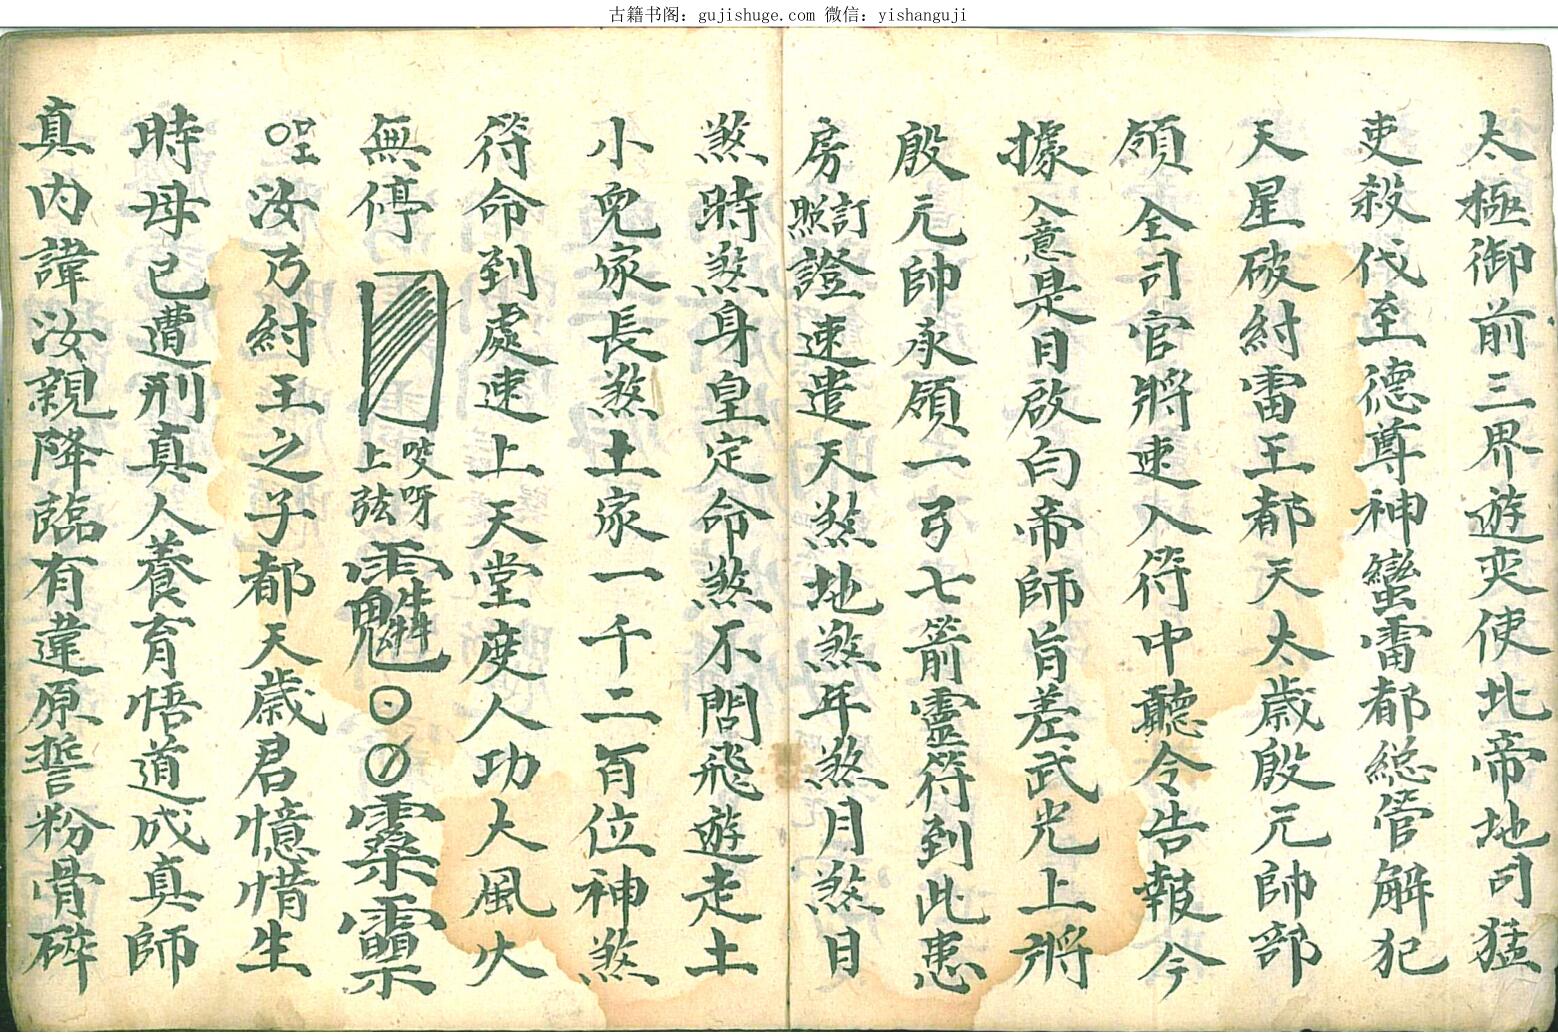 古籍书阁：gujishuge.com 微信：yishanguji
太極御前三界遊奕使北帝地司猛
吏殺伐至德尊神蠻雷都總管解犯
天星破紂雷王都天太歲殷元帥部
領全司官將速入符中聽令告報今
據入意是日啟白帝師旨差武光上將
殷元帥承領一弓七箭靈符到此患
房訂照證速遣天煞地煞年煞月煞日
煞時煞身皇定命煞不問飛遊走土
小兒家長煞土家一千二百位神煞
符命到處速上天堂度人功大風火
無停咬牙上弦
汝乃紂王之子都天歲君憶惜生
時母已遭刑真人養育悟道成真師
真內諱汝親降臨有違原誓粉骨碎